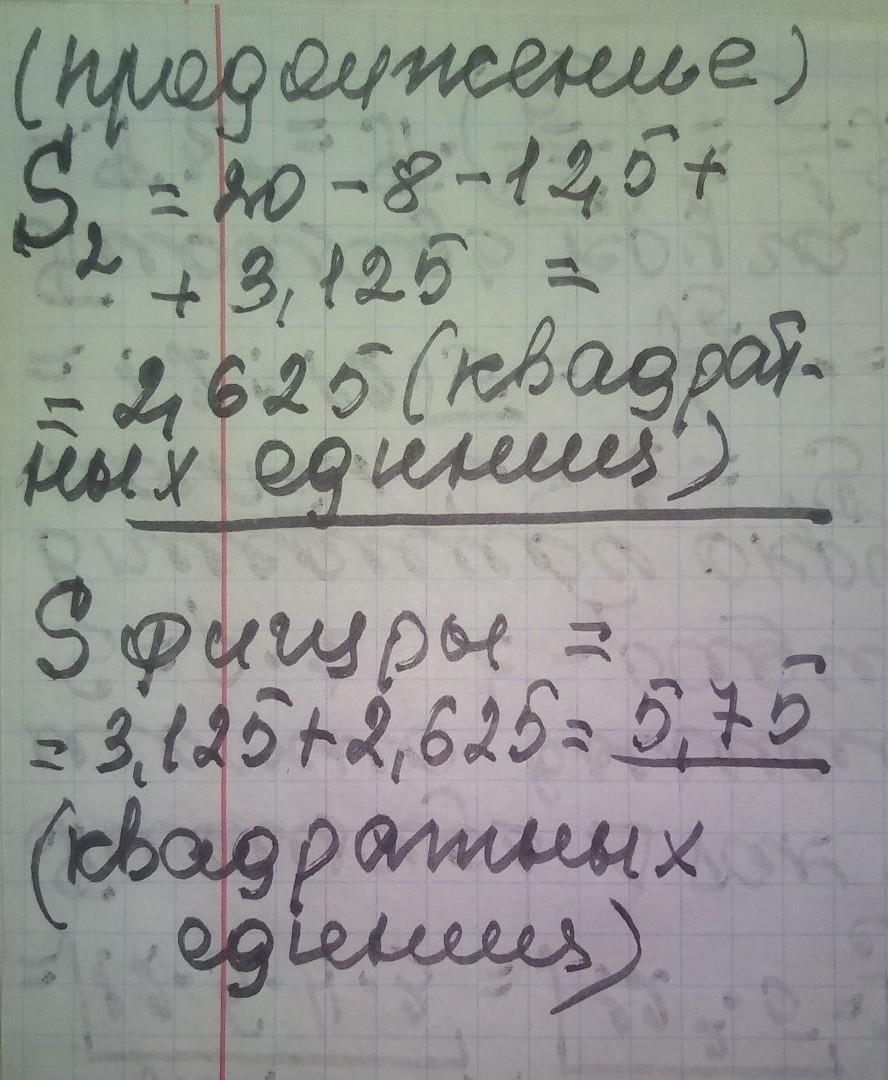 (продолжение)
S₂ = 20 - 8 - 12,5 +
+ 3,125 =
= 2,625 (квадрат-
ных единиц)
S фигуры =
= 3,125 + 2,625 = 5,75
(квадратных
единиц)